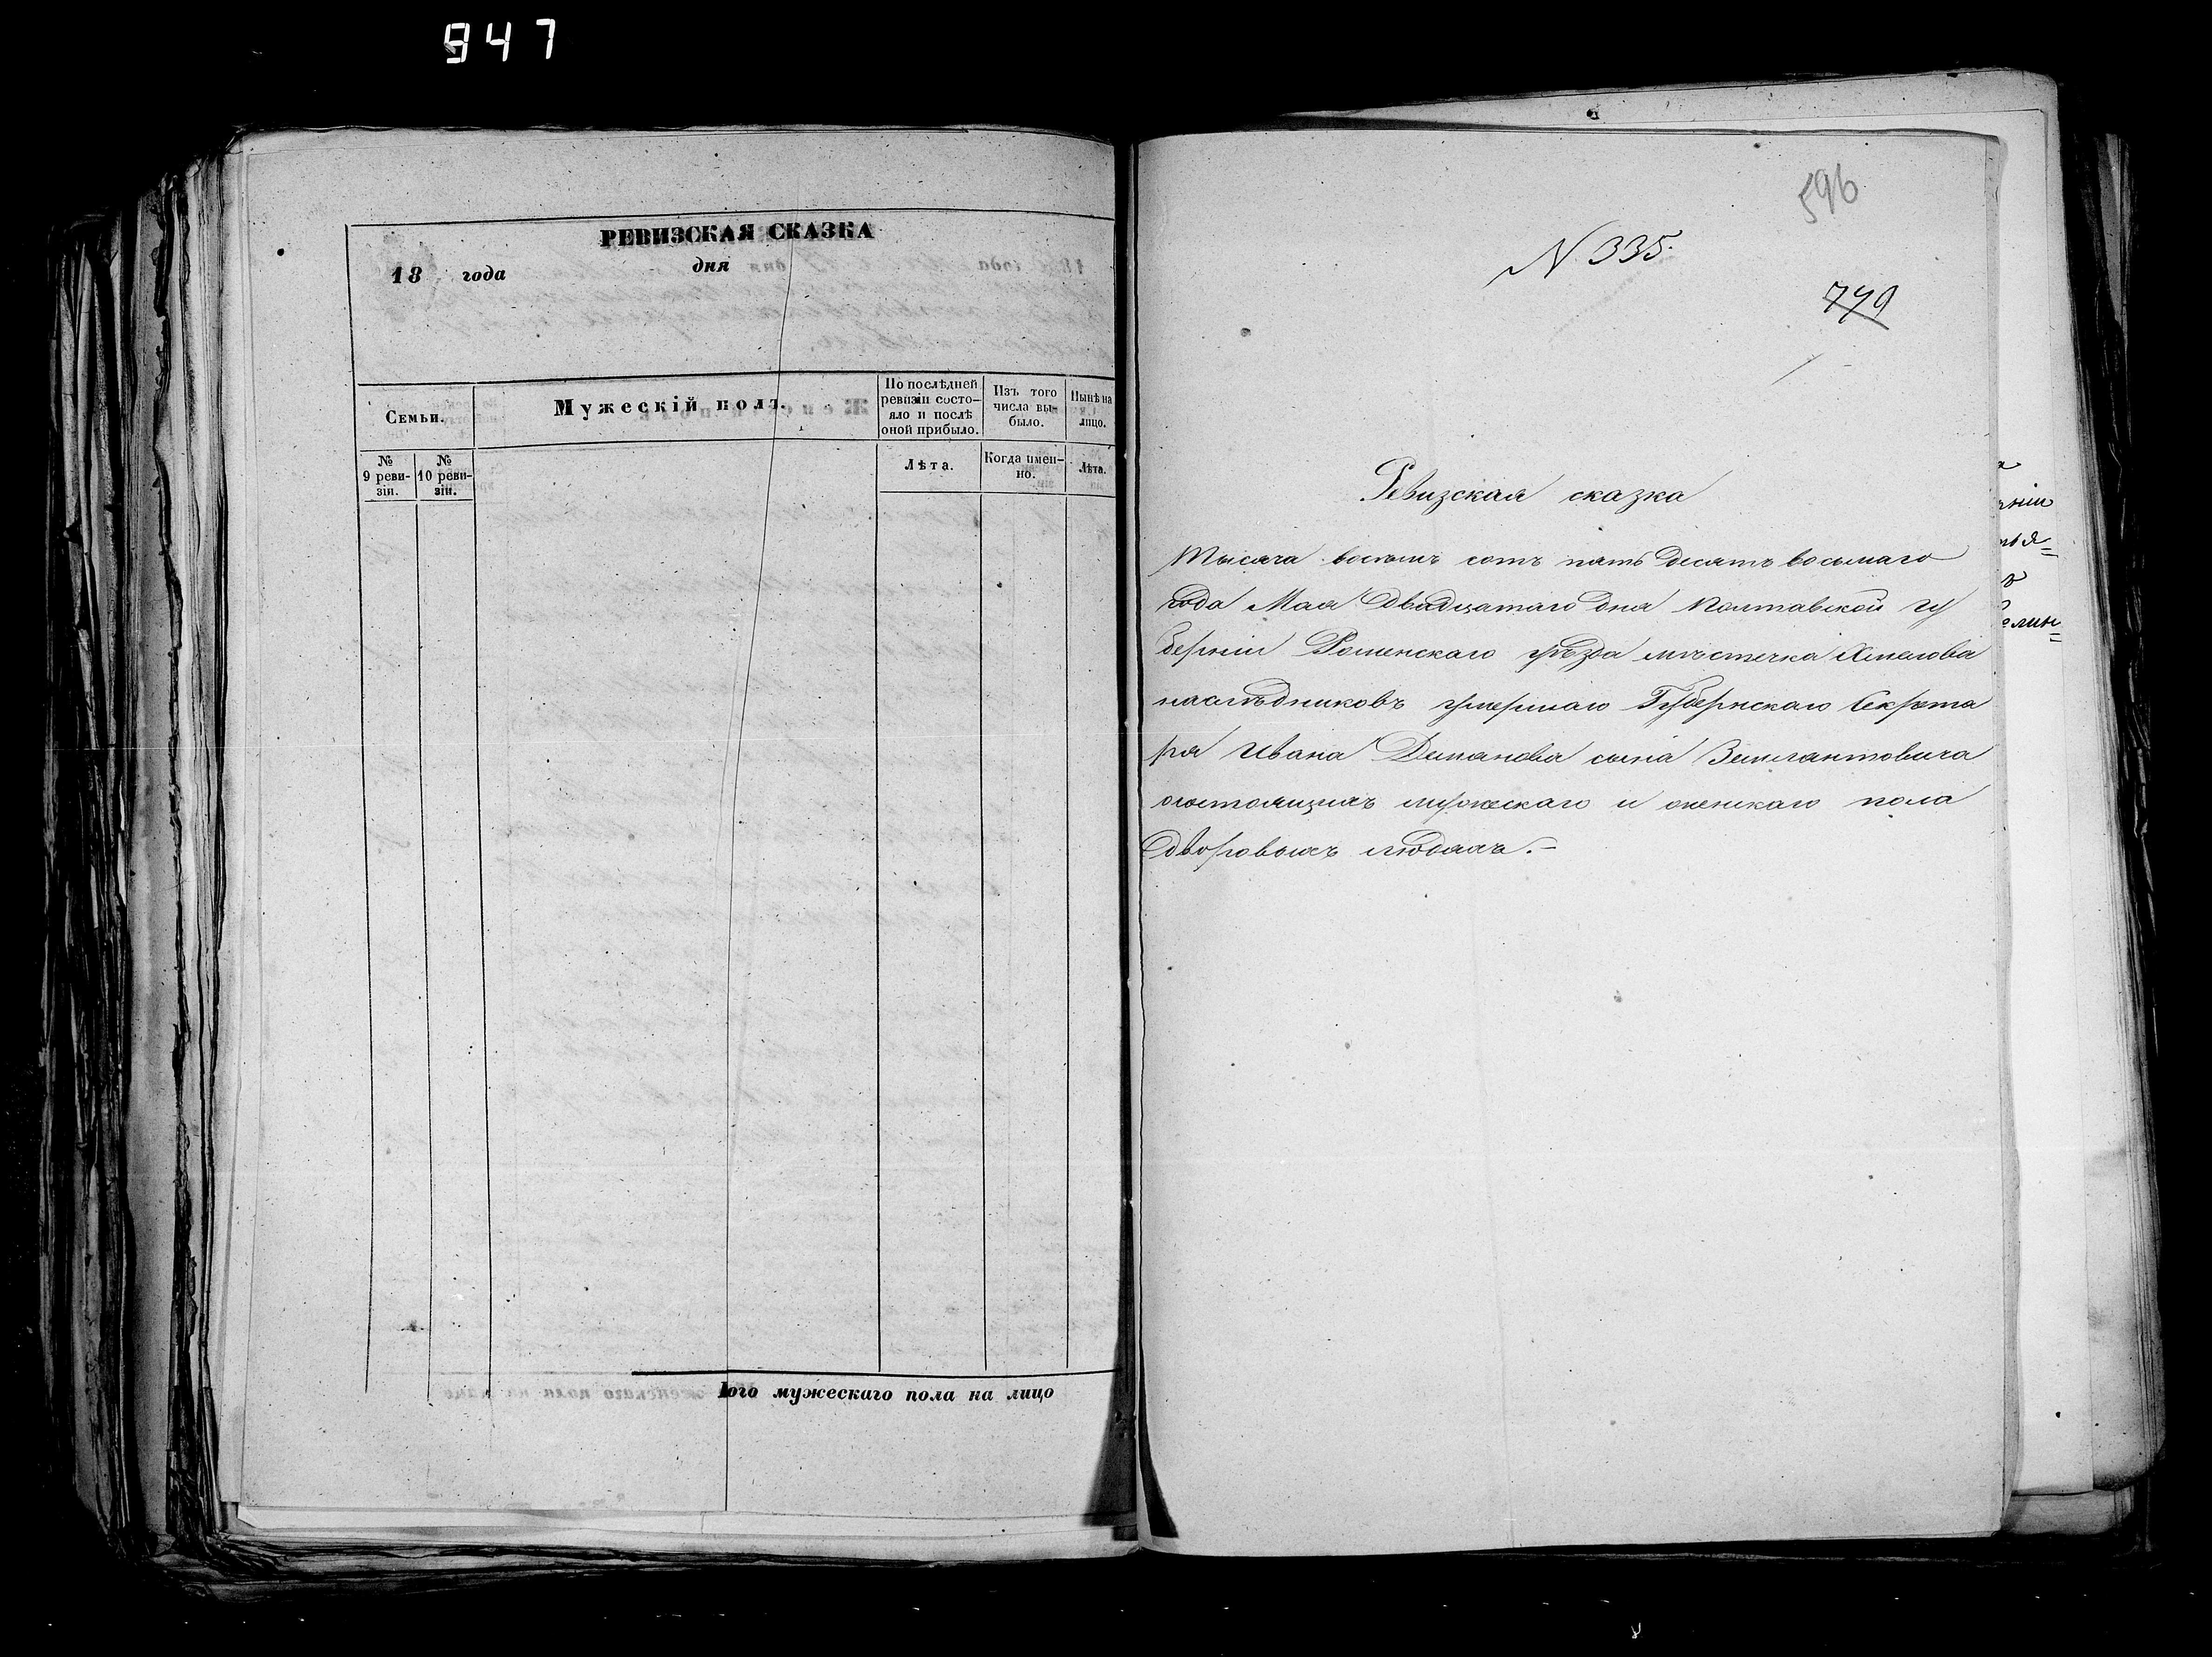 947
РЕВИЗСКАЯ СКАЗКА
18 года дня
Семьи.
Мужескій полъ.
По послѣдней ревизіи состояло и послѣ оной прибыло.
Изъ того числа выбыло.
Нынѣ на лицо.
№ 9 ревизіи.
№ 10 ревизіи.
Лѣта.
Когда именно.
Лѣта.
того мужескаго пола на лицо
596
N 335.
779
Ревизская сказка
Тысяча восемь сотъ пять десятъ восьмаго
года Мая двадцатаго дня Полтавской гу
берніи Роменскаго уѣзда мѣстечка Хмелова
наслѣдниковъ умершаго Губернскаго Секрета
ря Ивана Демянова сына
о состоящихъ мужескаго и женскаго пола
дворовыхъ людяхъ.-